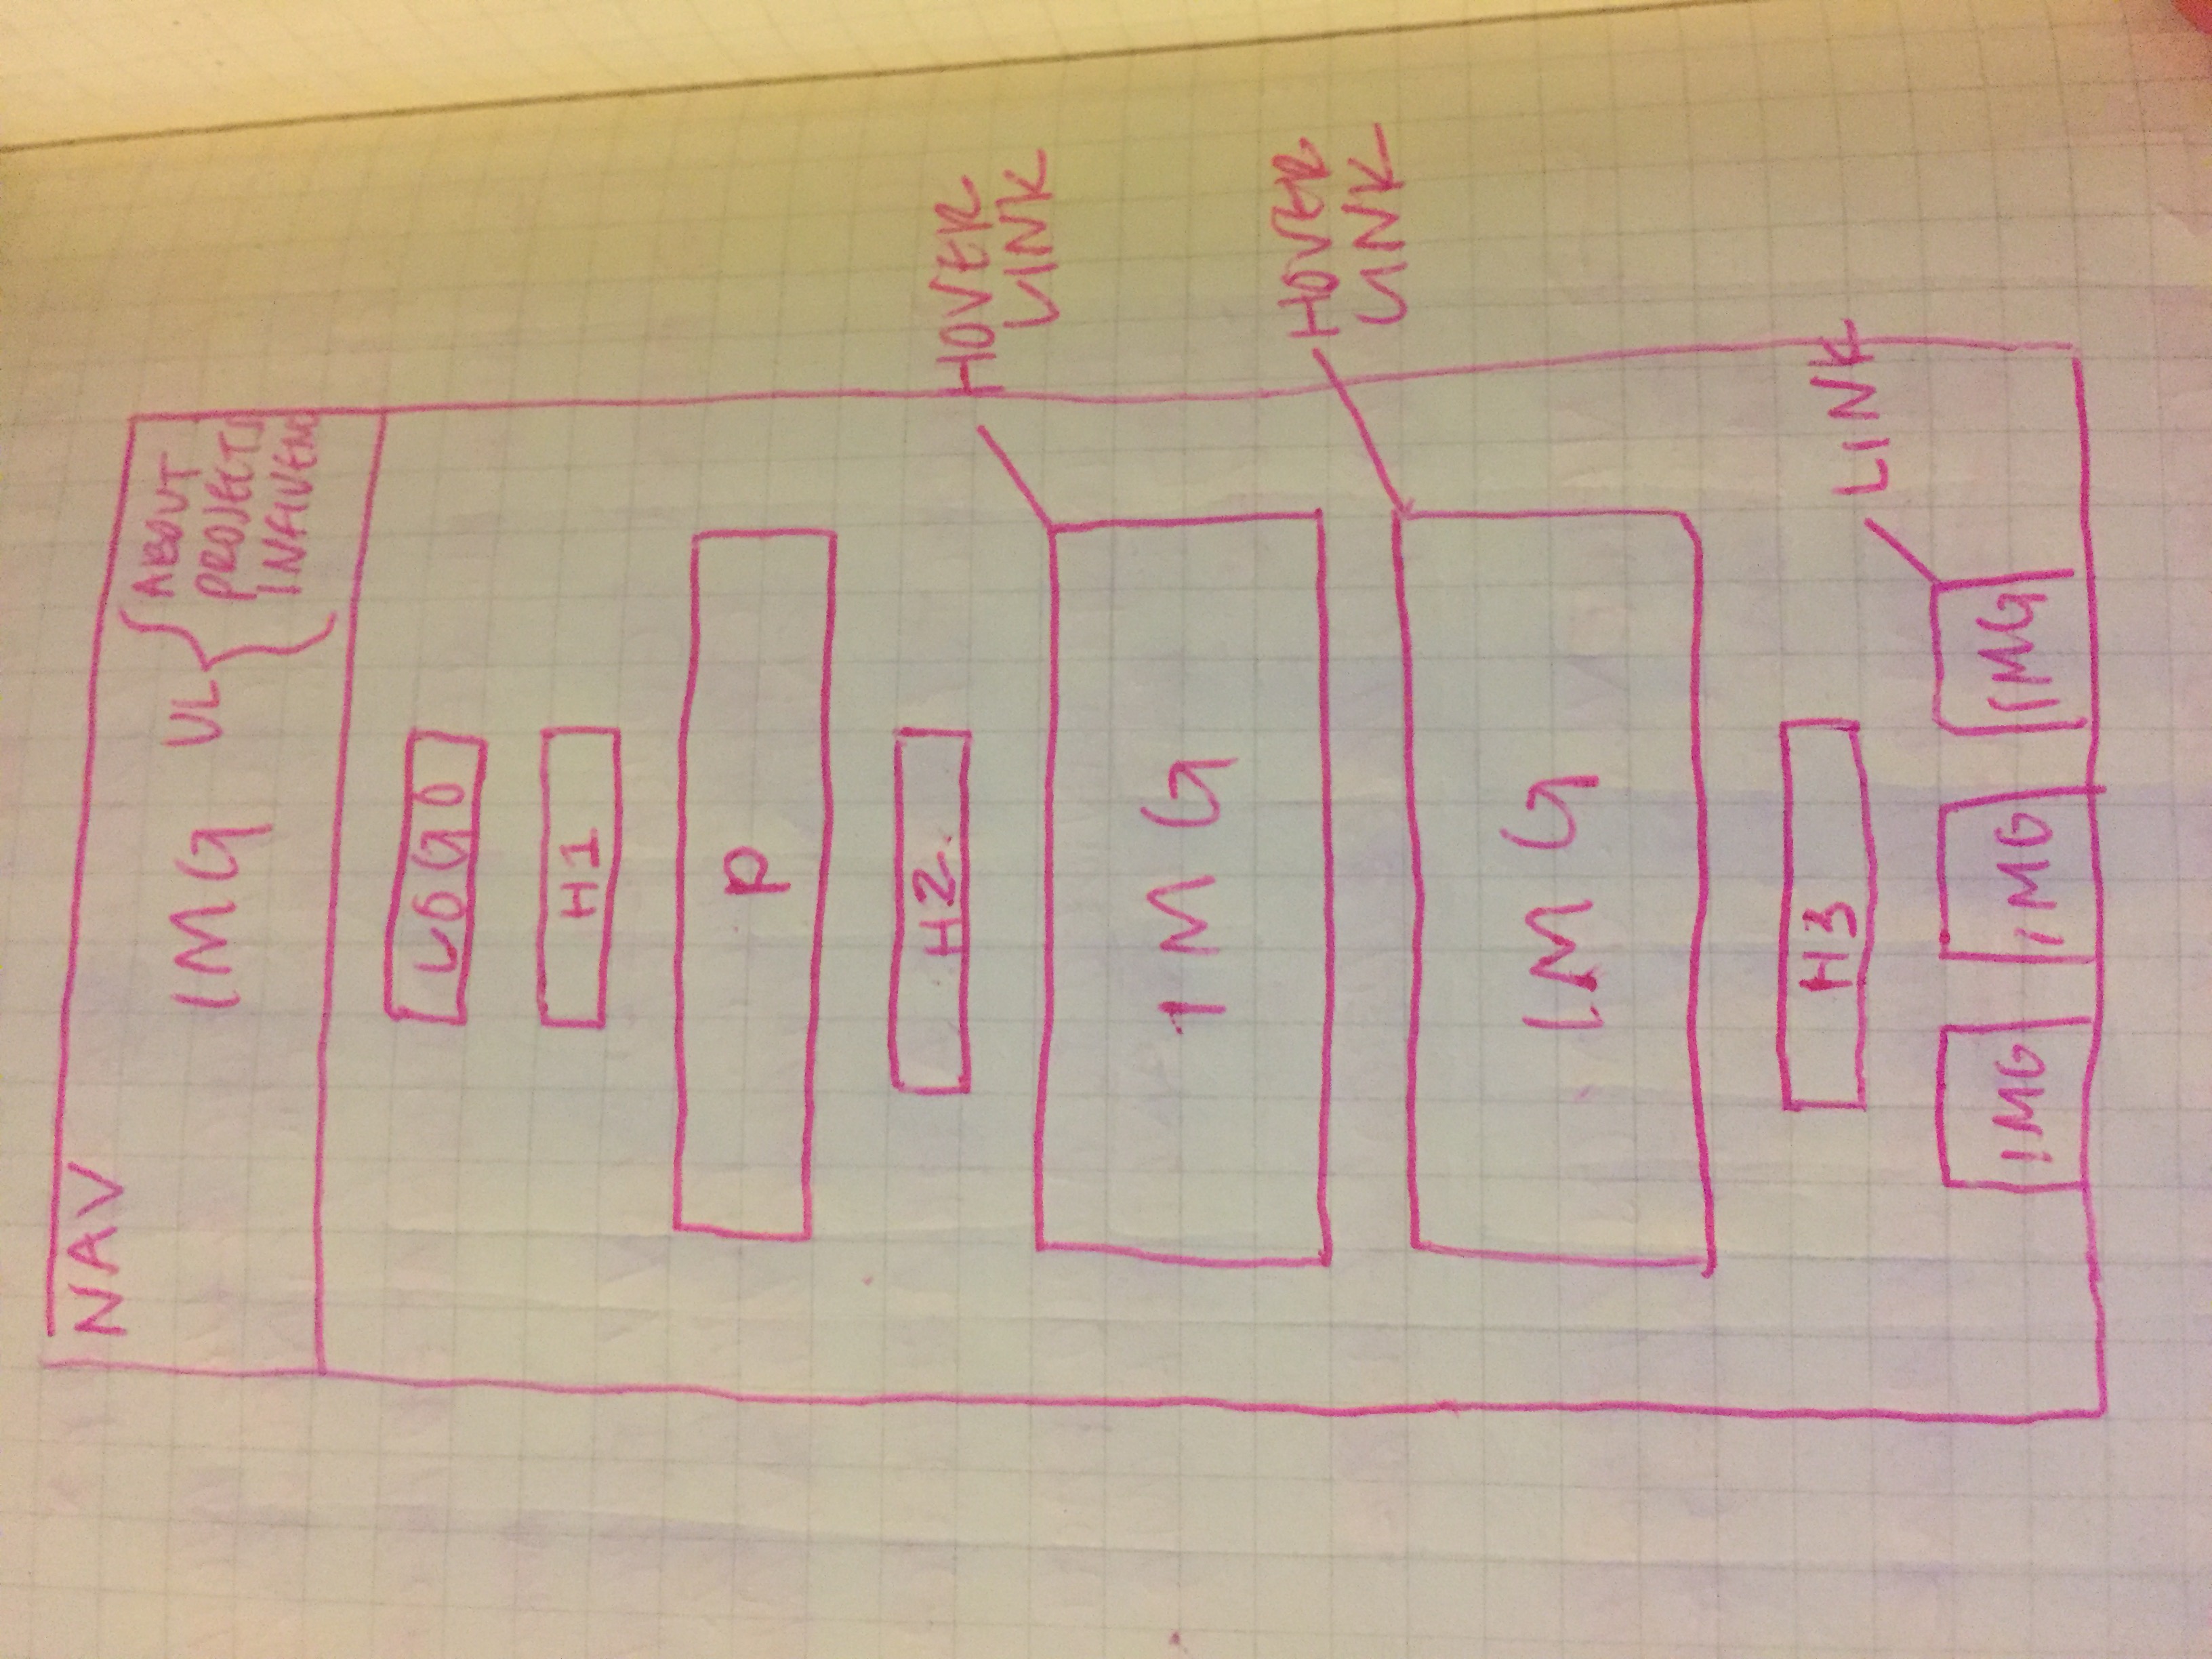 NAV
IMG UL { ABOUT
PROJECTS
LOGO
H1
P
H2
HOVER
LINK
IMG
HOVER
LINK
IMG
H3
LINK
IMG IMG IMG